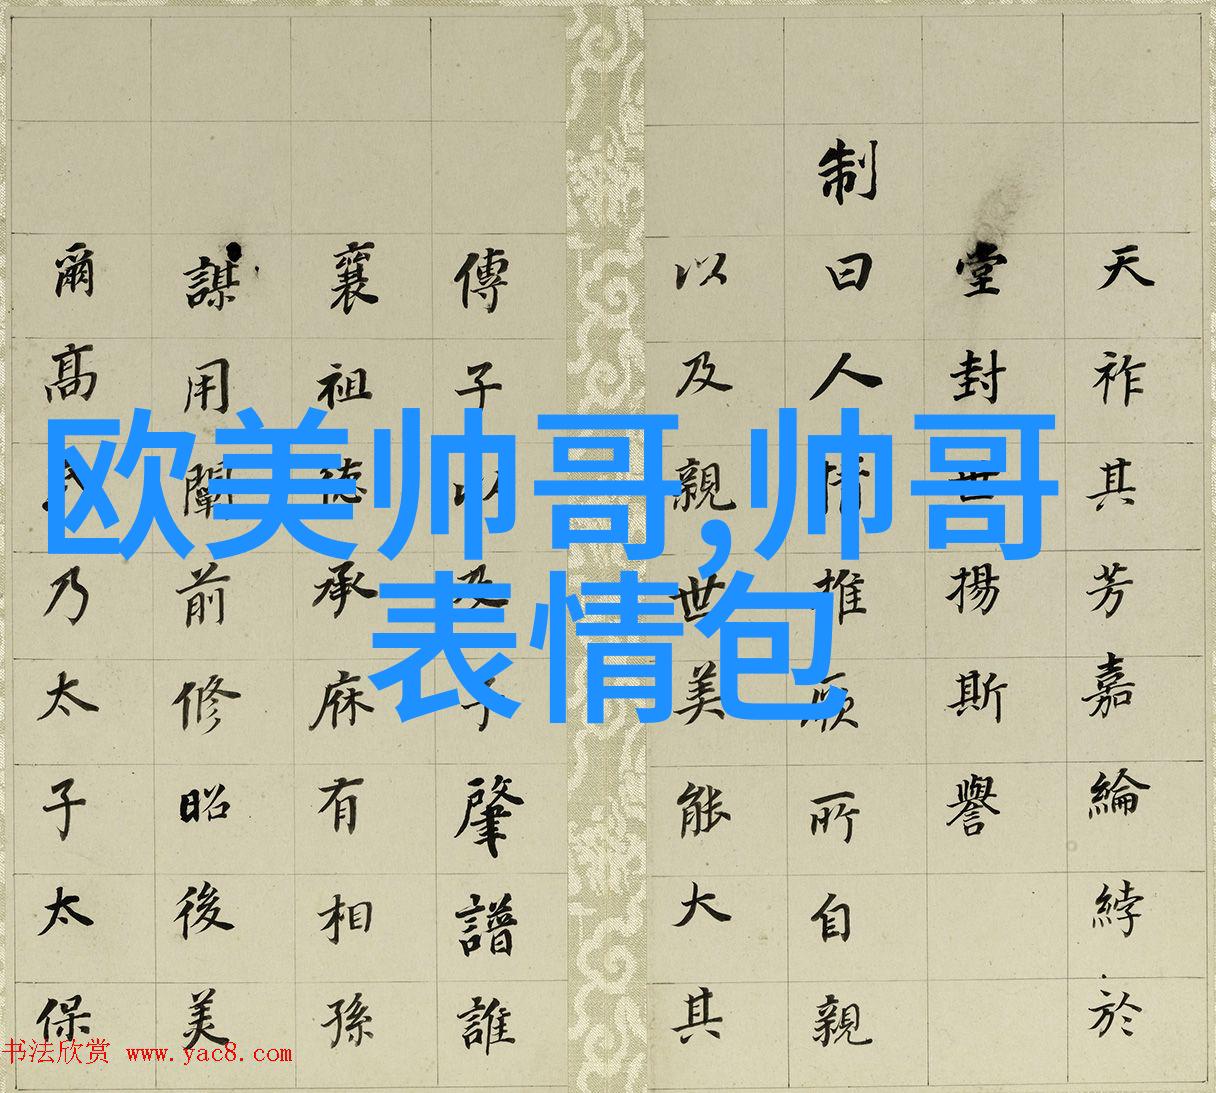 天祚其芳嘉綸綍於
堂封世揚斯譽
制曰人情推願所自親
以及親世美能大其
傳子以及子肇譜誰
襄祖德承庥有相孫
謀用闡前修昭後美
爾高乃太子太保
欧美帅哥,帅哥
表情包
书法欣赏 www.yac8.com